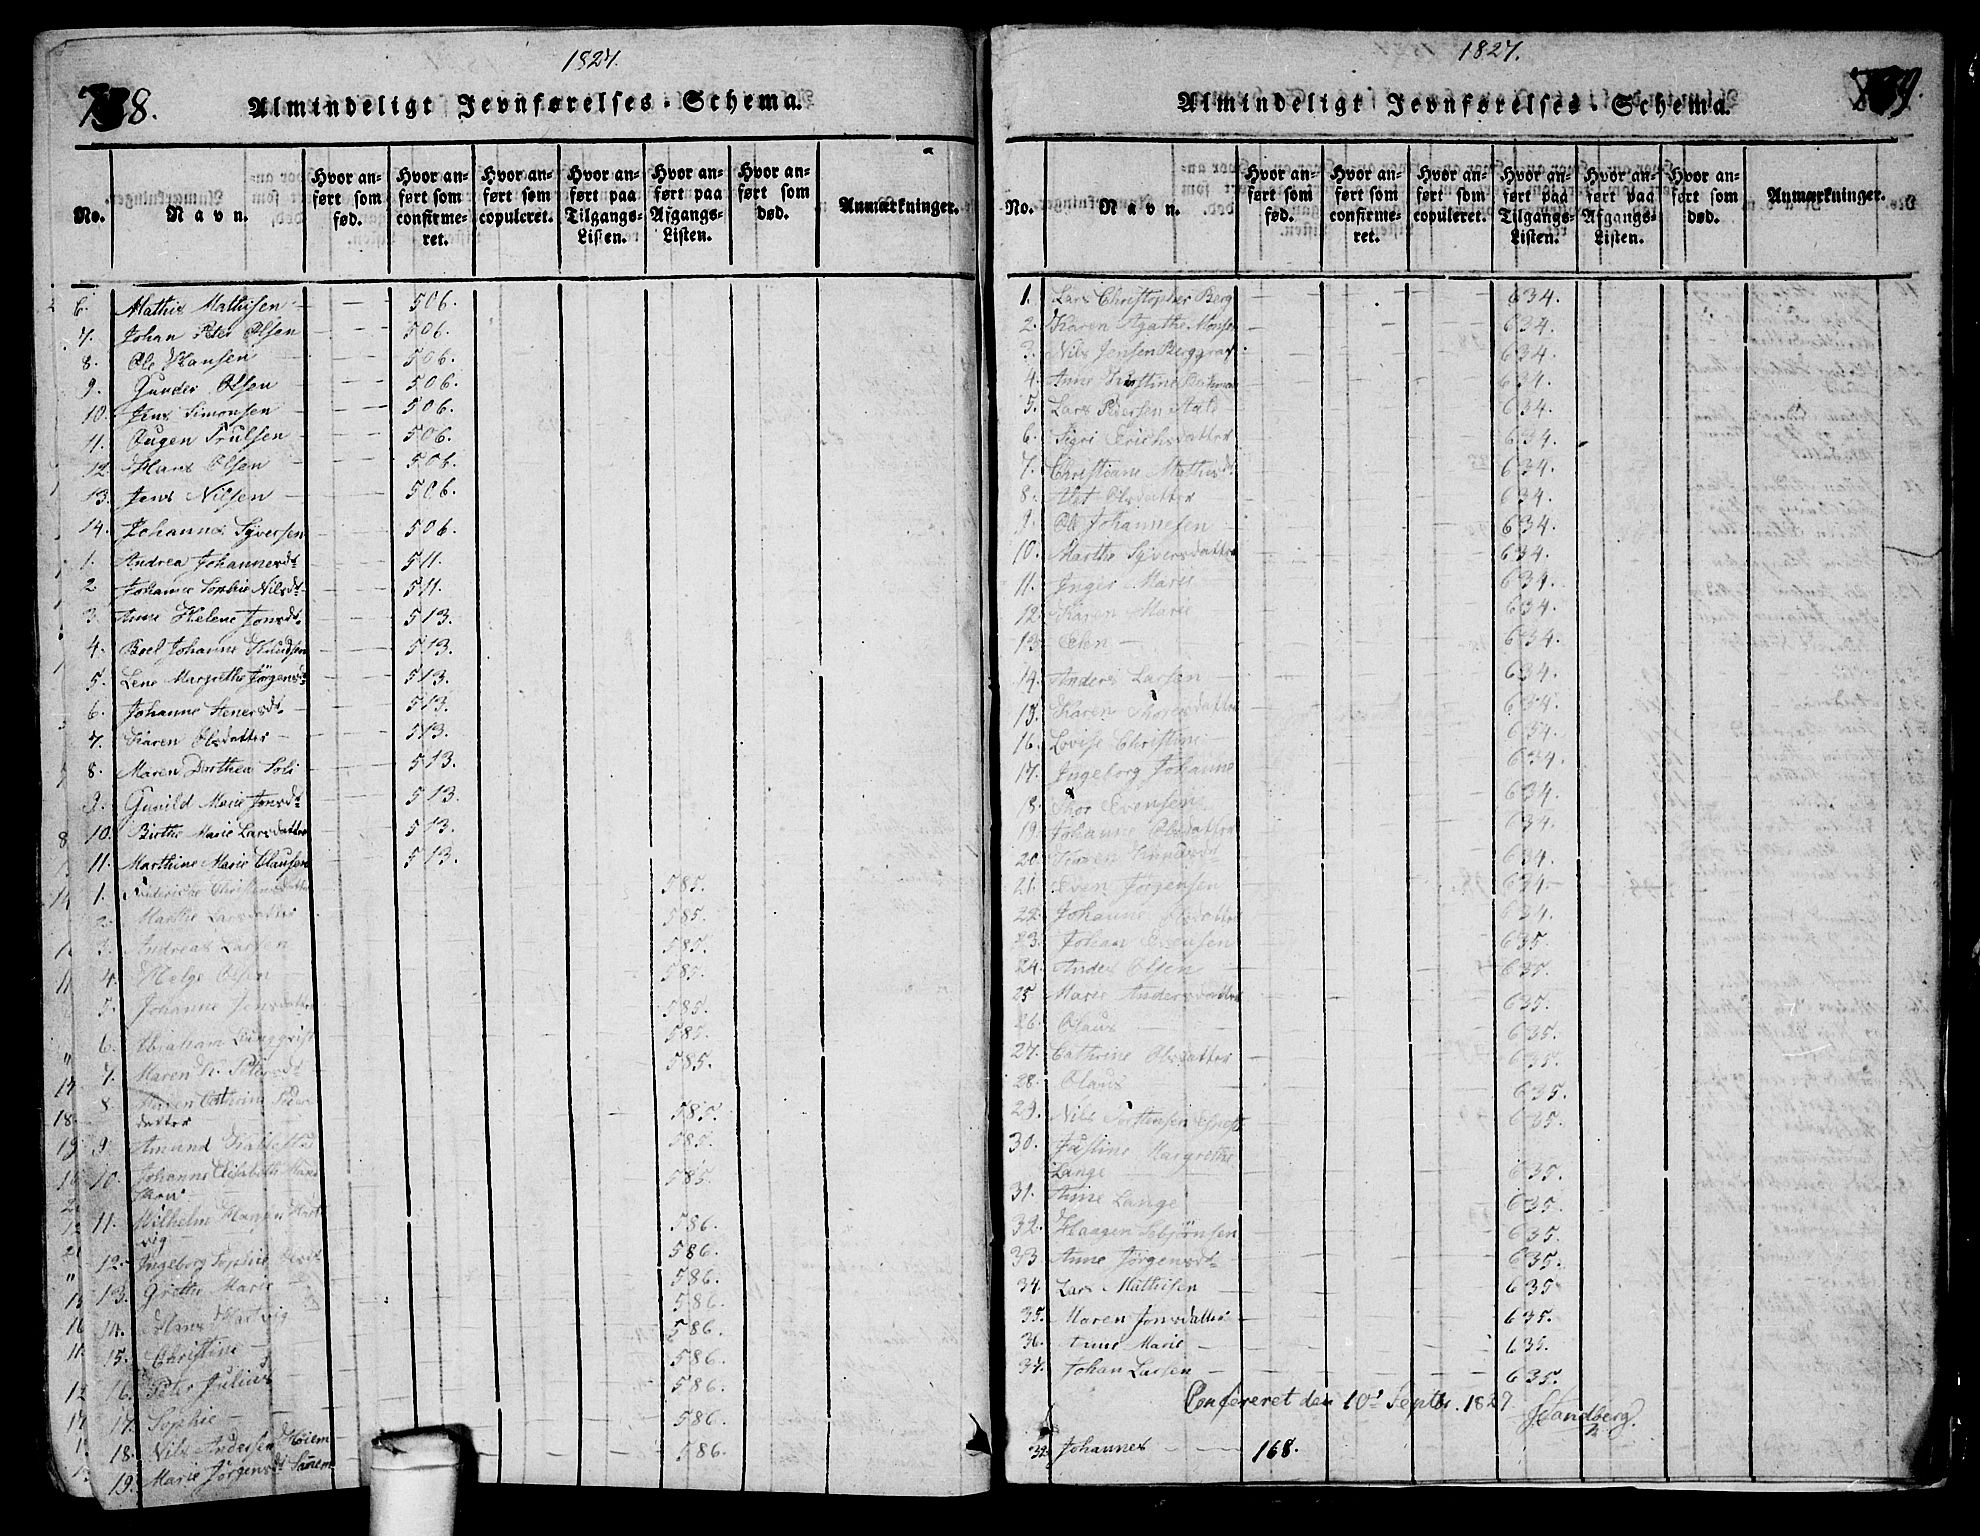 1827.
738.
Almindeligt Jevnførelses-Schema.
No.
Navn.
Hvor anført som fød.
Hvor anført som confirmeret.
Hvor anført som copuleret.
Hvor anført paa Tilgangs-Listen.
Hvor anført paa Afgangs-Listen.
Hvor anført som død.
Anmærkninger.
6. Mathis Mathisen 506.
7. Johan Peter Olsen 506.
8. Ole Hansen 506.
9. Gunder Olsen 506.
10. Jens Simonsen 506.
11. Jugen Trulsen 506.
12. Hans Olsen 506.
13. Jens Nilsen 506.
14. Johannes Syversen 506.
1. Andrea Johannesdt 511.
2. Johanne Sophie Nilsdt 511.
3. Anne Helene Jonsdt 513.
4. Boel Johanne Knudsen 513.
5. Lene Margrethe Jørgensdt 513.
6. Johanne Stenersdt 513.
7. Karen Olsdatter 513.
8. Maren Dorthea Soli 513.
9. Gunild Marie Jonsdt 513.
10. Birthe Marie Larsdatter 513.
11. Marthine Marie Clausen 513.
1. Frideriche Christensdatter 585.
2. Marthe Larsdatter 585.
3. Andreas Larsen 585.
4. Helge Olsen 585.
5. Johanne Jensdatter 585.
6. Abraham Lingqvist 585.
7. Maren K. Petersdt 585.
8. Maren Cathrine Peders
datter 585.
9. Amund 585.
10. Johanne Elisabeth
585.
11. Wilhelm Hansen Hart
vig 586.
12. Ingeborg Sophie 586.
13. Grethe Marie 586.
14. Hans Hartvig 586.
15. Christine 586.
16. Peter Julius 586.
17. Sophie 586.
18. Nils Andersen Holm 586.
19. Marie Jørgensdt Sanem
1827.
739.
Almindeligt Jevnførelses-Schema.
No.
Navn.
Hvor anført som fød.
Hvor anført som confirmeret.
Hvor anført som copuleret.
Hvor anført paa Tilgangs-Listen.
Hvor anført paa Afgangs-Listen.
Hvor anført som død.
Anmærkninger.
1. Lars Christopher Berg 634.
2. Karen Agathe Monsen 634.
3. Nils Jensen Berggrav 634.
4. Anne Kirstine 634.
5. Lars Pedersen Aals 634.
6. Sigri Erichsdatter 634.
7. Christiane Mathisdt 634.
8. Alet Olsdatter 634.
9. Ole Johannesen 634.
10. Marthe Syversdatter 634.
11. Inger Marie 634.
12. Karen Marie 634.
13. Elen 634.
14. Anders Larsen 634.
15. Karen Thoresdatter 634.
16. Lovise Christine 634.
17. Ingeborg Johanne 634.
18. Thor Evensen 634.
19. Johanne Olsdatter 634.
20. Karen Knudsdt 634.
21. Even Jørgensen 634.
22. Johanne Olsdatter 634.
23. Johan Evensen 635.
24. Anders Olsen 635.
25. Marie Andersdatter 635.
26. Olaus 635.
27. Cathrine Olsdatter 635.
28. Olaus 635.
29. Nils Torstensen 635.
30. Justine Margrethe
Lange 635.
31. Anne Lange 635.
32. Haagen Sebjørnsen 635.
33. Anne Jørgensdt 635.
34. Lars Mathisen 635
35. Maren Jonsdatter 635.
36. Anne Marie 635.
37. Johan Larsen 635.
Confereret den 10de Septbr. 1827 Sandberg.
32. Johannes 168.